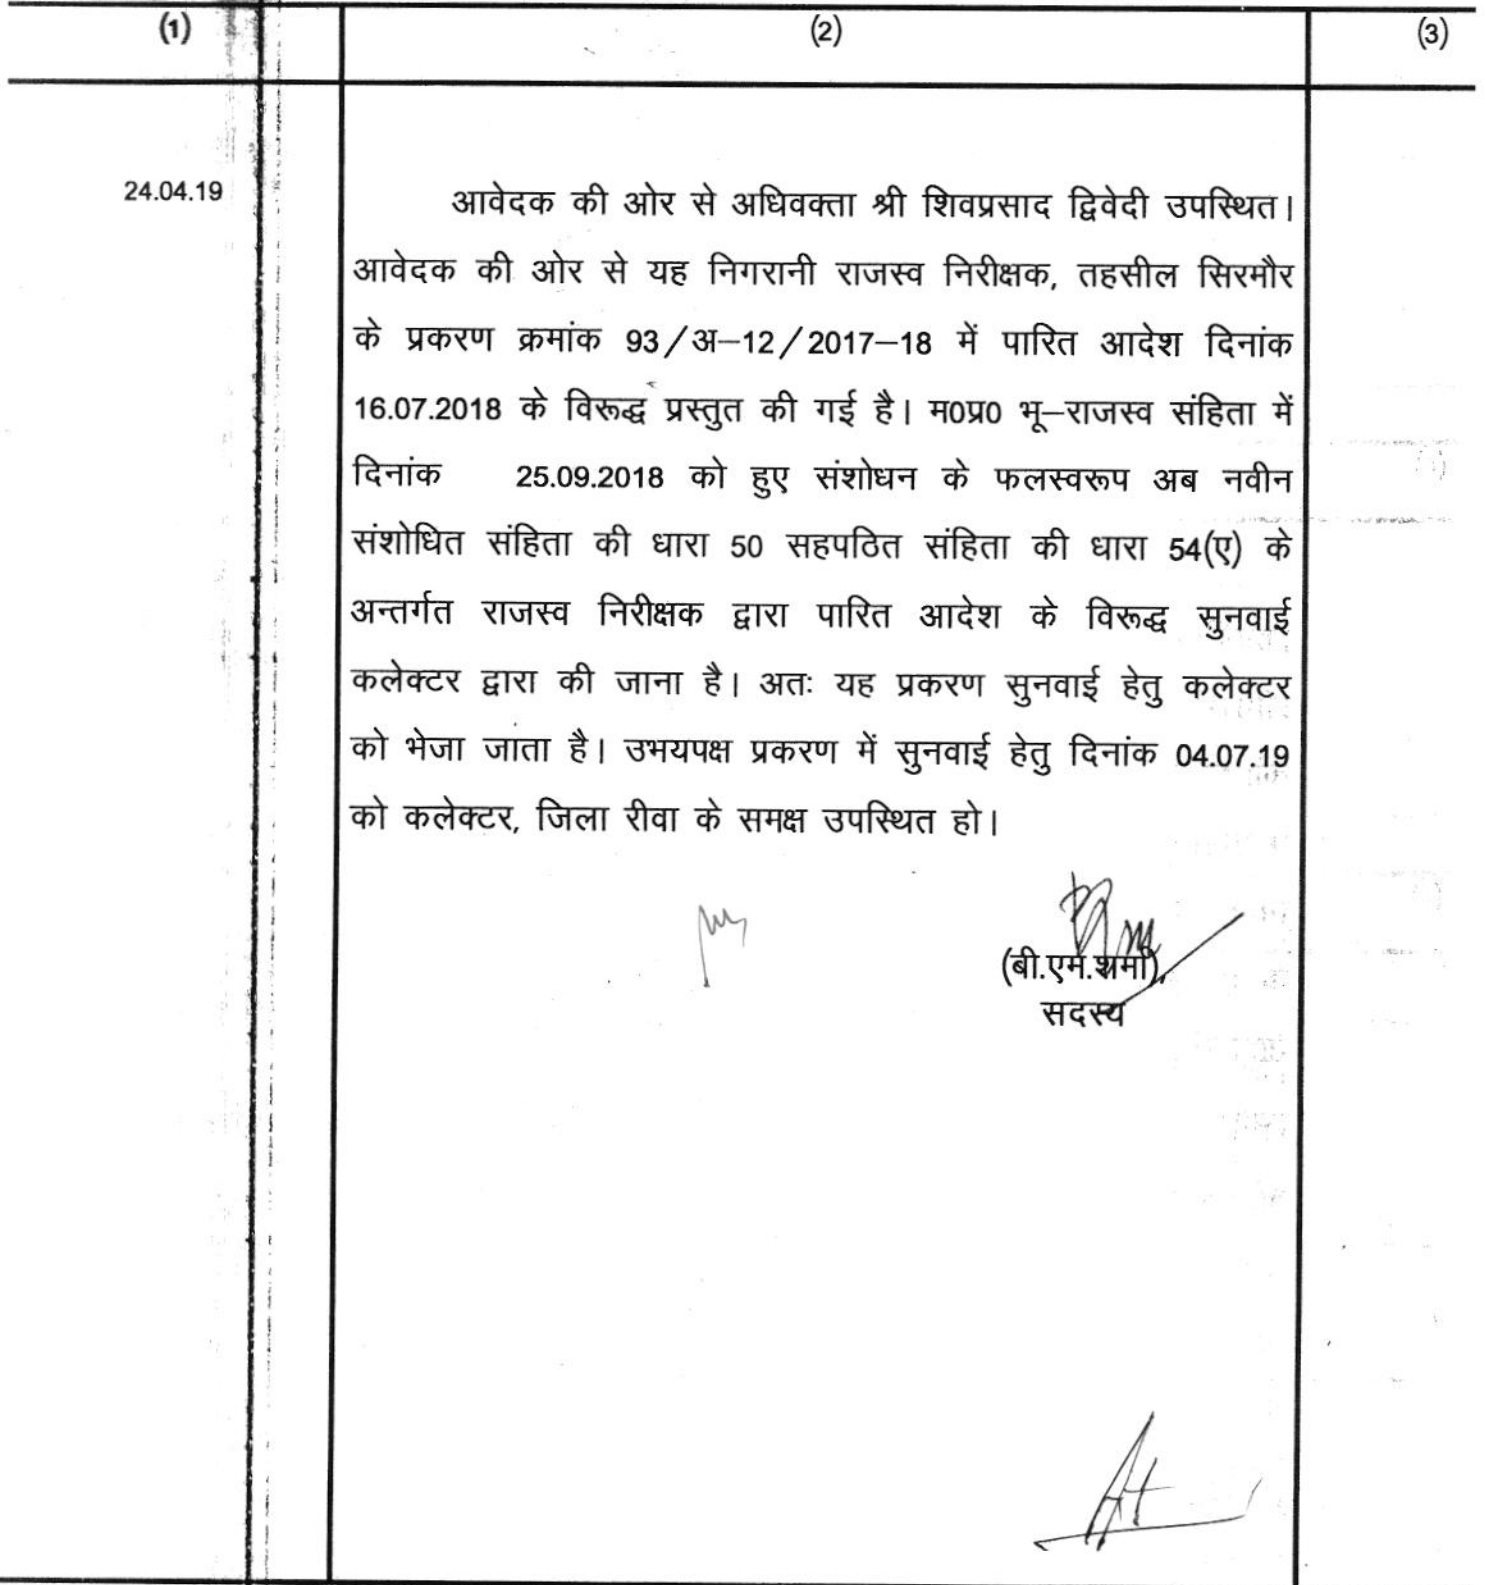 (1) (2) (3)
24.04.19
आवेदक की ओर से अधिवक्ता श्री शिवप्रसाद द्विवेदी उपस्थित।
आवेदक की ओर से यह निगरानी राजस्व निरीक्षक, तहसील सिरमौर
के प्रकरण क्रमांक 93/अ–12/2017–18 में पारित आदेश दिनांक
16.07.2018 के विरूद्ध प्रस्तुत की गई है। म0प्र0 भू–राजस्व संहिता में
दिनांक 25.09.2018 को हुए संशोधन के फलस्वरूप अब नवीन
संशोधित संहिता की धारा 50 सहपठित संहिता की धारा 54(ए) के
अन्तर्गत राजस्व निरीक्षक द्वारा पारित आदेश के विरूद्ध सुनवाई
कलेक्टर द्वारा की जाना है। अतः यह प्रकरण सुनवाई हेतु कलेक्टर
को भेजा जाता है। उभयपक्ष प्रकरण में सुनवाई हेतु दिनांक 04.07.19
को कलेक्टर, जिला रीवा के समक्ष उपस्थित हो।
(बी.एम.शर्मा)
सदस्य